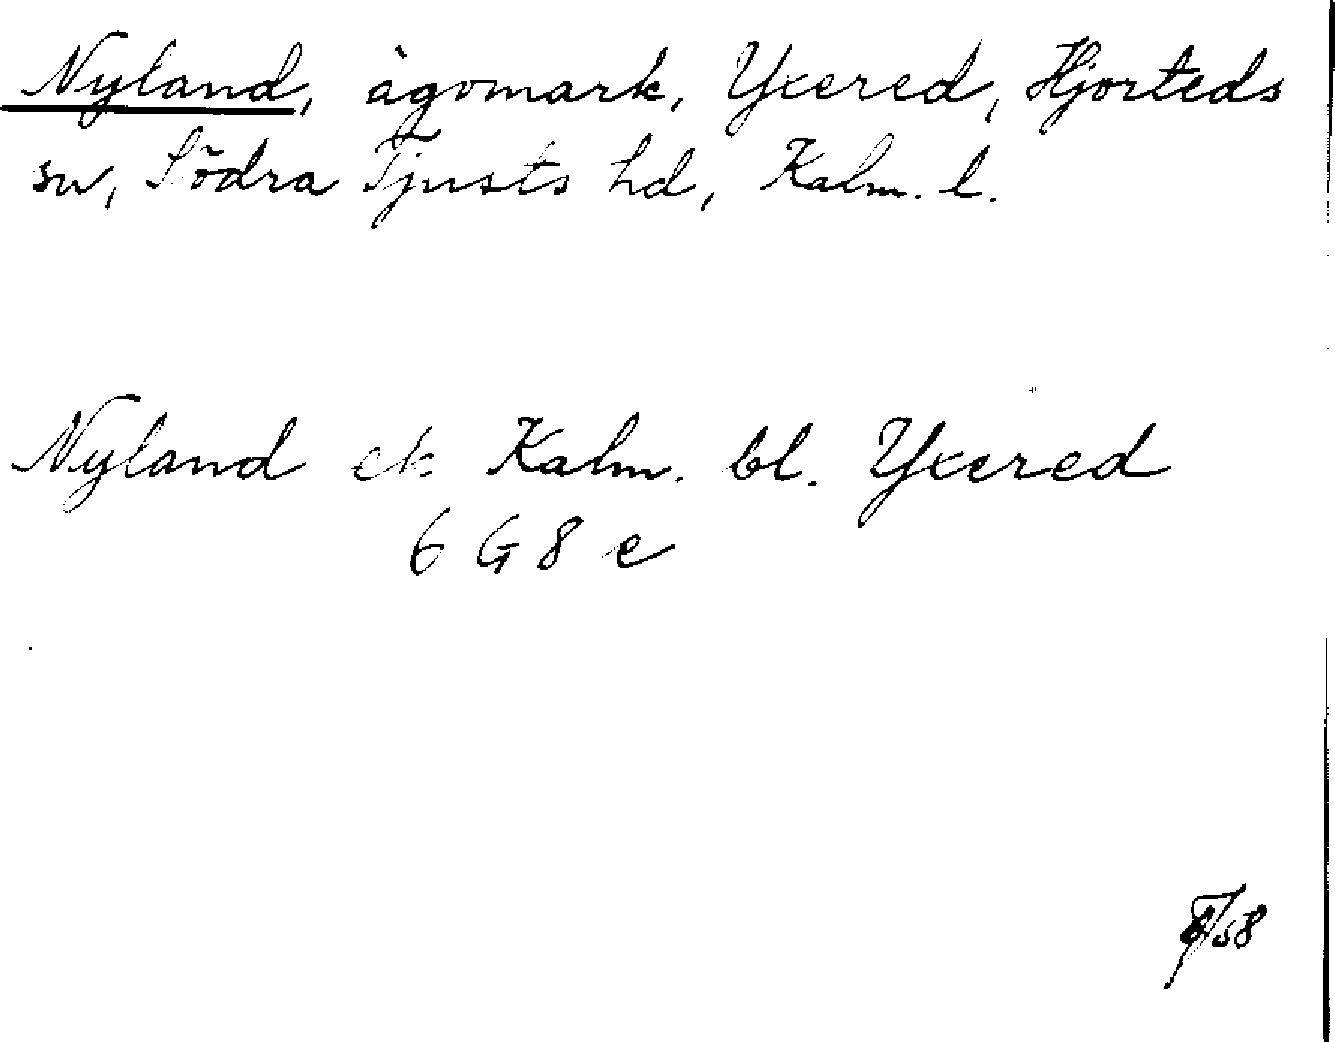 Nyland, ägomark, Yxered, Hjorteds
sn, Södra Tjusts hd, Kalm. l.
Nyland ek Kalm. bl. Yxered
6 G 8 e